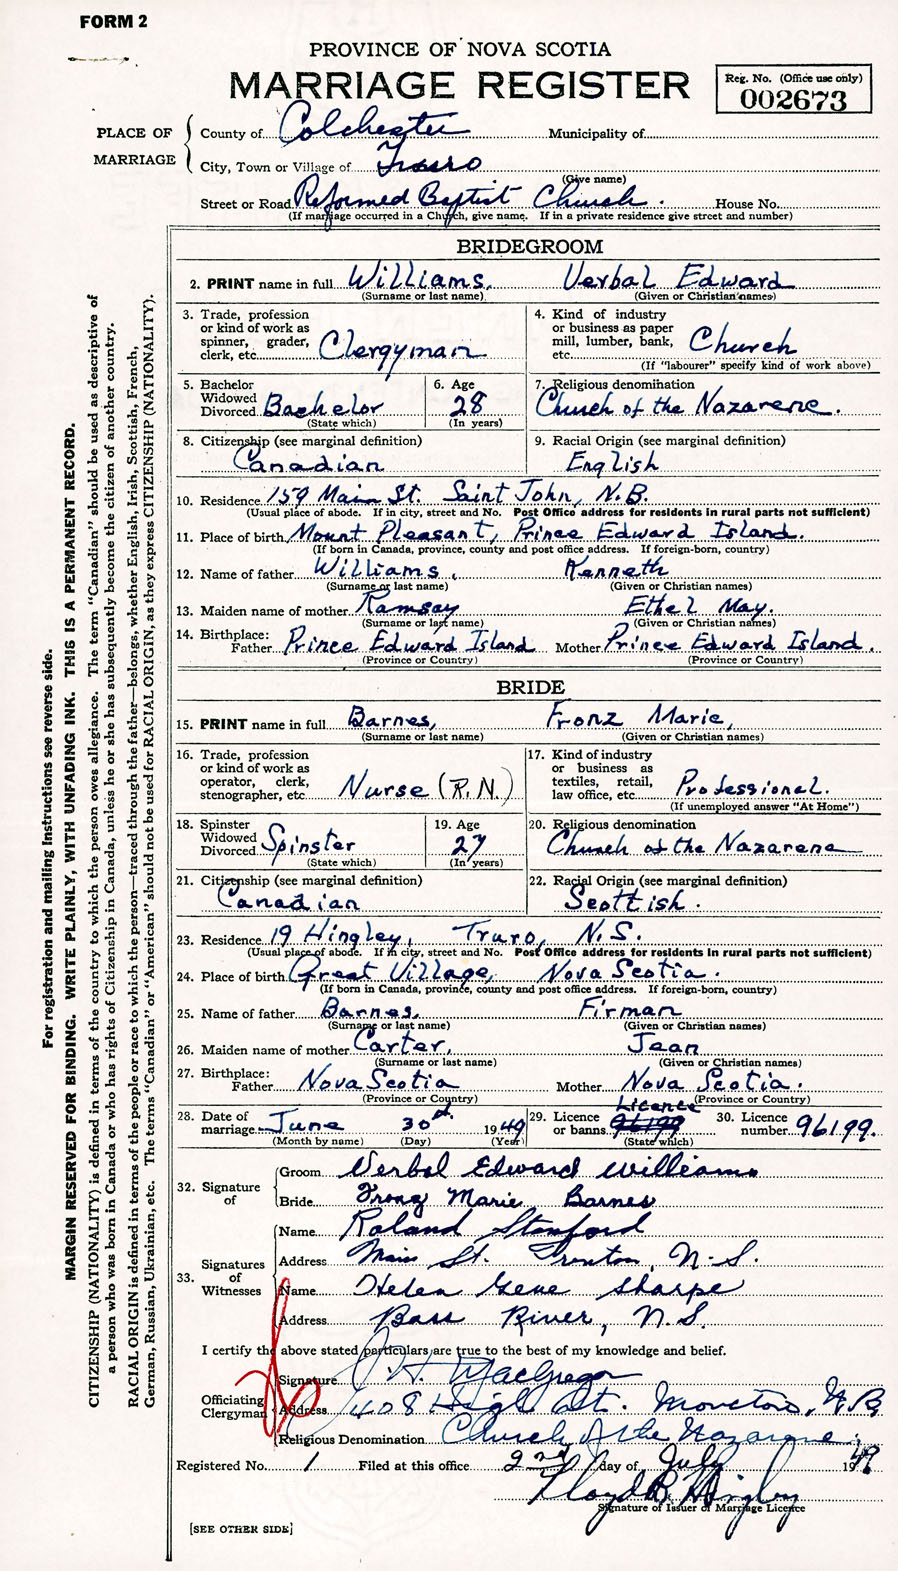 FORM 2
PROVINCE OF NOVA SCOTIA
MARRIAGE REGISTER
Reg. No. (Office use only)
002673
PLACE OF MARRIAGE
County of Colchester Municipality of
City, Town or Village of Truro
(Give name)
Street or Road Reformed Baptist Church. House No.
(If marriage occurred in a Church, give name. If in a private residence give street and number)
BRIDEGROOM
2. PRINT name in full Williams, Verbal Edward
(Surname or last name) (Given or Christian names)
3. Trade, profession or kind of work as spinner, grader, clerk, etc. Clergyman
4. Kind of industry or business as paper mill, lumber, bank, etc. Church
(If "labourer" specify kind of work above)
5. Bachelor Widowed Divorced Bachelor
(State which)
6. Age 28
(In years)
7. Religious denomination
Church of the Nazarene.
8. Citizenship (see marginal definition)
Canadian
9. Racial Origin (see marginal definition)
English
10. Residence 159 Main St. Saint John, N.B.
(Usual place of abode. If in city, street and No. Post Office address for residents in rural parts not sufficient)
11. Place of birth Mount Pleasant, Prince Edward Island.
(If born in Canada, province, county and post office address. If foreign-born, country)
12. Name of father Williams, Kenneth
(Surname or last name) (Given or Christian names)
13. Maiden name of mother Ramsay Ethel May.
(Surname or last name) (Given or Christian names)
14. Birthplace: Father Prince Edward Island Mother Prince Edward Island.
(Province or Country) (Province or Country)
BRIDE
15. PRINT name in full Barnes, Fronz Marie,
(Surname or last name) (Given or Christian names)
16. Trade, profession or kind of work as operator, clerk, stenographer, etc. Nurse (R.N.)
17. Kind of industry or business as textiles, retail, law office, etc. Professional.
(If unemployed answer "At Home")
18. Spinster Widowed Divorced Spinster
(State which)
19. Age 27
(In years)
20. Religious denomination
Church of the Nazarene
21. Citizenship (see marginal definition)
Canadian
22. Racial Origin (see marginal definition)
Scottish.
23. Residence 19 Hingley, Truro, N.S.
(Usual place of abode. If in city, street and No. Post Office address for residents in rural parts not sufficient)
24. Place of birth Great Village, Nova Scotia.
(If born in Canada, province, county and post office address. If foreign-born, country)
25. Name of father Barnes, Firman
(Surname or last name) (Given or Christian names)
26. Maiden name of mother Carter, Jean
(Surname or last name) (Given or Christian names)
27. Birthplace: Father Nova Scotia Mother Nova Scotia.
(Province or Country) (Province or Country)
28. Date of marriage June 30 1949
(Month by name) (Day) (Year)
29. Licence or banns Licence
(State which)
30. Licence number 96199.
32. Signature of
Groom Verbal Edward Williams
Bride Fronz Marie Barnes
33. Signatures of Witnesses
Name Roland Stanford
Address Main St. Trenton, N.S.
Name Helen Gene Sharpe
Address Bass River, N.S.
I certify the above stated particulars are true to the best of my knowledge and belief.
Officiating Clergyman
Signature J. H. MacGregor
Address 408 High St. Moncton, N.B.
Religious Denomination Church of the Nazarene.
Registered No. 1 Filed at this office 2nd day of July 1949
Floyd B. Hingley
Signature of Issuer of Marriage Licence
[SEE OTHER SIDE]
For registration and mailing instructions see reverse side.
MARGIN RESERVED FOR BINDING. WRITE PLAINLY, WITH UNFADING INK. THIS IS A PERMANENT RECORD.
CITIZENSHIP (NATIONALITY) is defined in terms of the country to which the person owes allegiance. The term "Canadian" should be used as descriptive of
a person who was born in Canada or who has rights of Citizenship in Canada, unless he or she has subsequently become the citizen of another country.
RACIAL ORIGIN is defined in terms of the people or race to which the person—traced through the father—belongs, whether English, Irish, Scottish, French,
German, Russian, Ukrainian, etc. The terms "Canadian" or "American" should not be used for RACIAL ORIGIN, as they express CITIZENSHIP (NATIONALITY).